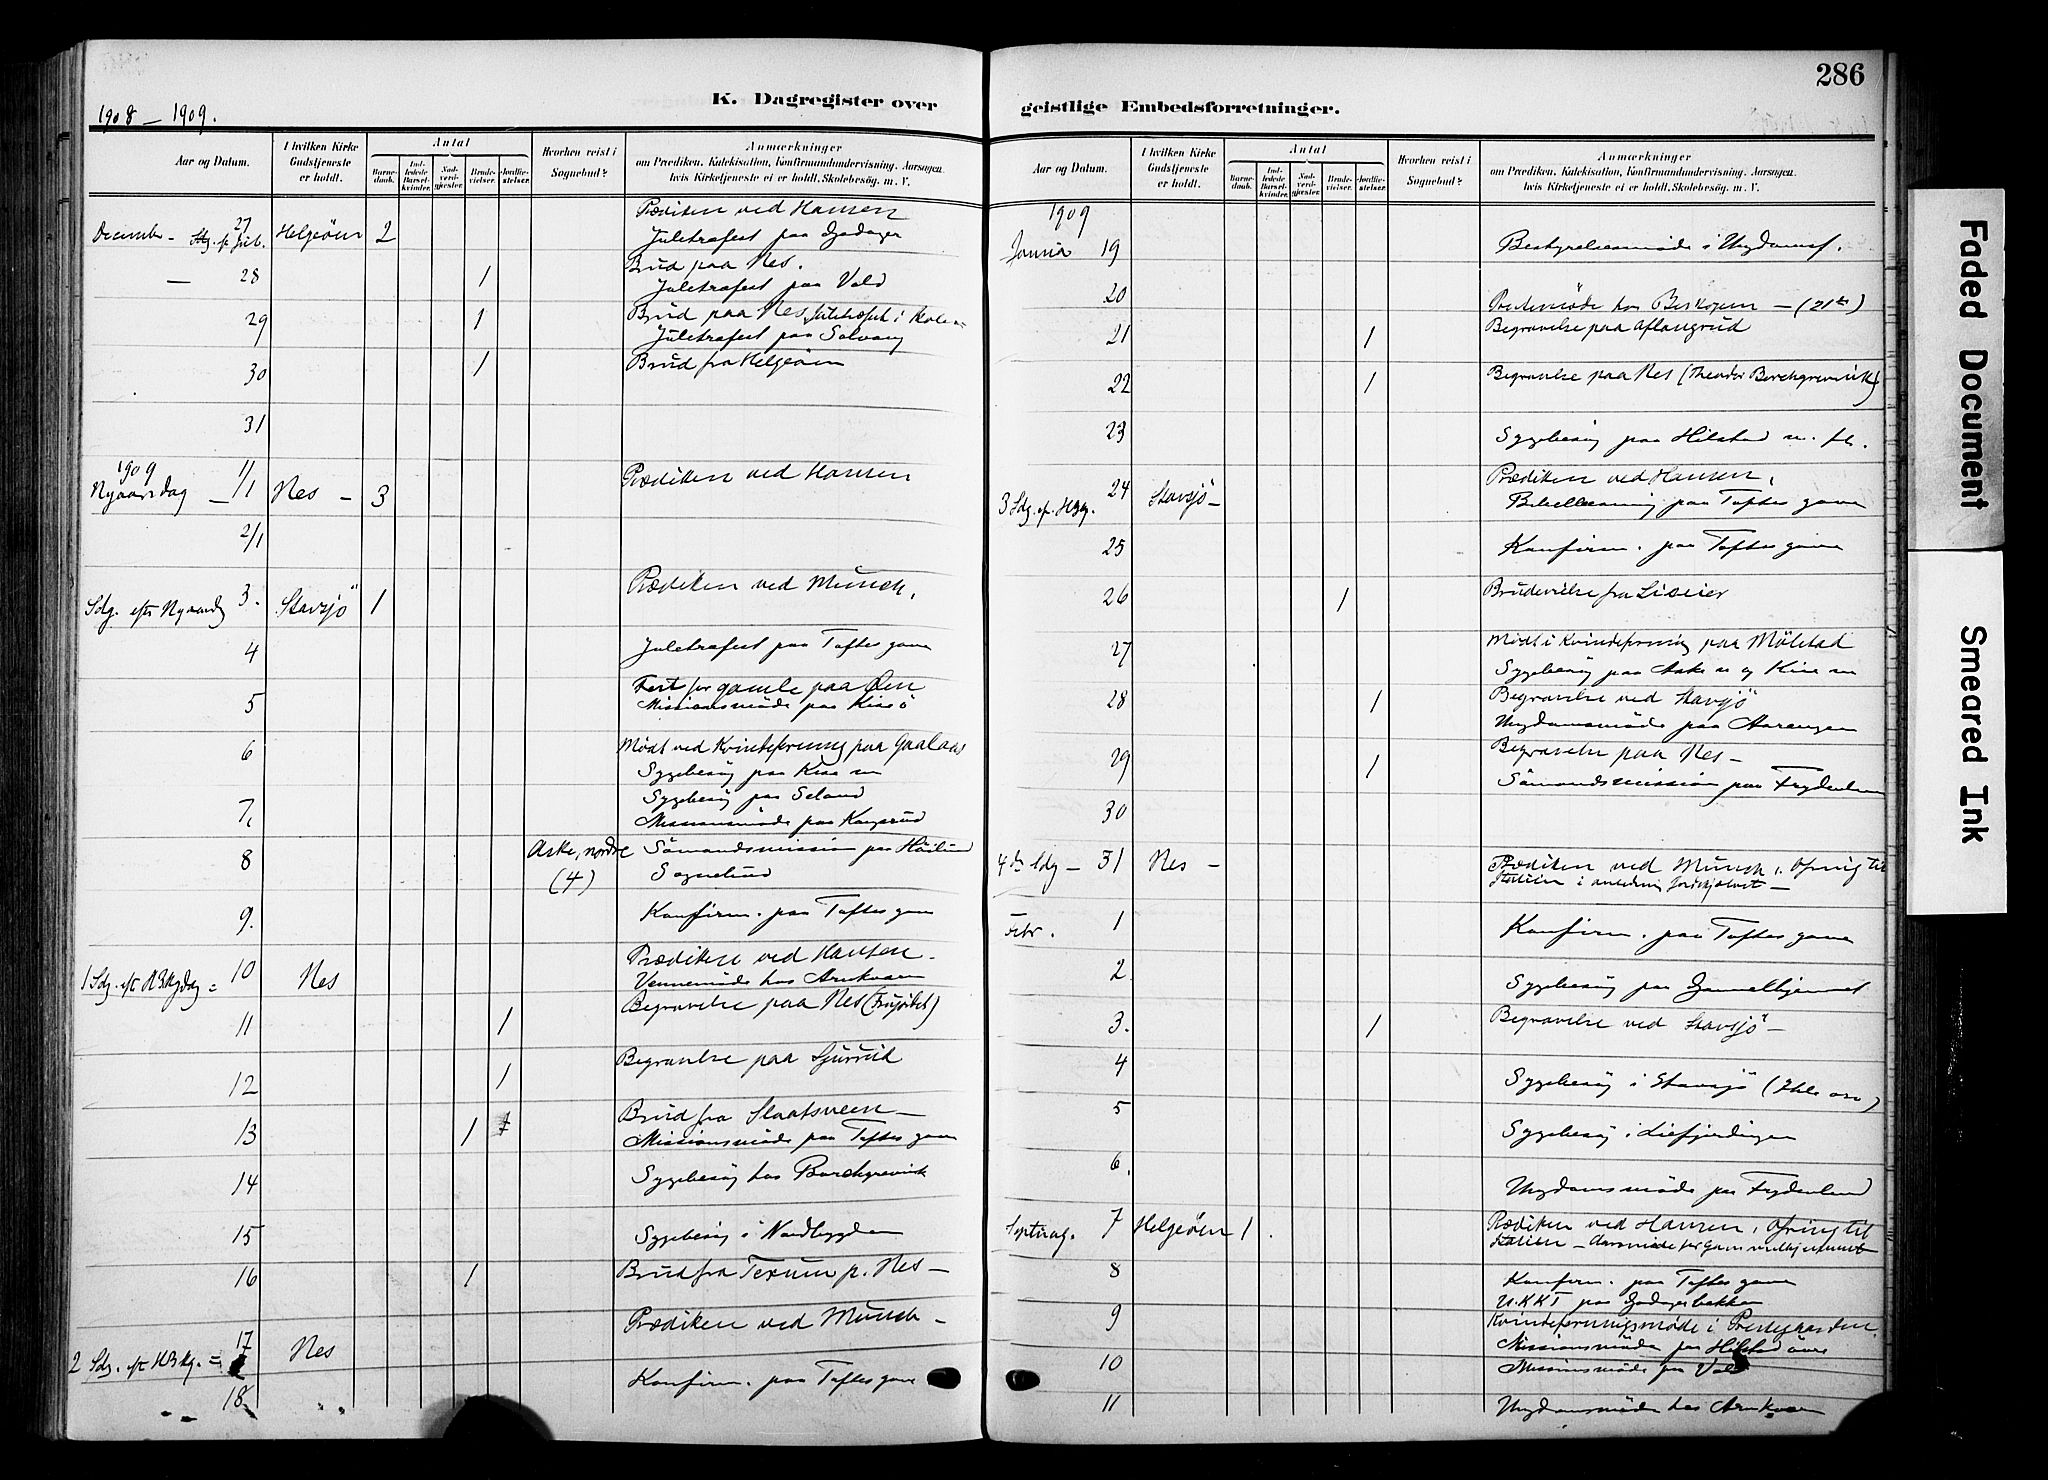 286
1908 – 1909.
K. Dagregister over
geistlige Embedsforretninger.
Aar og Datum.
I hvilken Kirke Gudstjeneste er holdt.
Antal
Barnedaab.
Indledede Barselkvinder.
Nadverdgjester.
Brudevielser.
Jordfæstelser.
Hvorhen reist i Sognebud?
Anmærkninger
om Prædiken, Katekisation, Konfirmandundervisning, Aarsagen,
hvis Kirketjeneste ei er holdt, Skolebesög. m. V.
December – Sdg. f. Jul. 27 Helgeöen 2 Prædiken ved Hansen
Juletræfest paa Gjødager
— 28 1 Brud paa Nes.
Juletræfest paa Vold
29 1 Brud paa Nes Juletræfest i
Juletræfest paa Solvang
30 1 Brud fra Helgeöen
31
1909
Nyaarsdag – 1/1 Nes – 3 Prædiken ved Hansen
2/1
Sdg. efter Nyaarsdag 3. Stavsjö 1 Prædiken ved Munch.
4 Juletræfest paa Toftes gave
5 Fest for gamle paa Öen
Missionsmöde paa Kise
6 Mødt ved Kvindeforening paa Gaalaas
Sygebesög paa Kise
7. Sygebesög paa Seland
Missionsmöde paa
8 Aske, nordre (4) Sömandsmission paa
Sognebud
9. Konfirm. paa Toftes gave
1 Sdg. eft. H3Kgdag = 10 Nes Prædiken ved Hansen.
Vennemöde hos Arnkværn
11 1 Begravelse paa Nes
12 1 Begravelse paa Sjurrud
13 1 Brud fra Slaatsveen –
Missionsmöde paa Toftes gave
14 Sygebesög hos Borchgrevink
15 Sygebesög i Nordbygden
16 1 Brud fra Texum p. Nes –
2 Sdg. eft. H3Kg. = 17 Nes Prædiken ved Munch –
18. Konfirm. paa Toftes gave
Aar og Datum.
I hvilken Kirke Gudstjeneste er holdt.
Antal
Barnedaab.
Indledede Barselkvinder.
Nadverdgjester.
Brudevielser.
Jordfæstelser.
Hvorhen reist i Sognebud?
Anmærkninger
om Prædiken, Katekisation, Konfirmandundervisning, Aarsagen,
hvis Kirketjeneste ei er holdt, Skolebesög. m. V.
1909
Januar 19 Bestyrelsesmöde i Ungdomsf.
20 Prestemöde hos Biskopen – (21de)
21 1 Begravelse paa Aflangrud
22 1 Begravelse paa Nes (Theodor Borchgrevink)
23 Sygebesög paa Hilstad
3 Sdg. ef. H3Kg. 24 Stavsjö – Prædiken ved Hansen.
Bibellæsning paa Toftes gave
25 Konfirm. paa Toftes gave
26 1 Brudevielse fra Liseier
27 Mødt i Kvindeforening paa Mölstad
Sygebesög paa Aske og Kise
28 1 Begravelse ved Stavsjö
Ungdomsmöde paa
29 1 Begravelse paa Nes –
Sömandsmission paa Frydenlund
30
4de Sdg – 31 Nes – Prædiken ved Munch. Ofring til
Italien i anledning Jordskjælvet –
Febr. 1 Konfirm. paa Toftes gave
2 Sygebesög paa Gamlehjemmet
3. 1 Begravelse ved Stavsjö –
4 Sygebesög i Stavsjö
5 Sygebesög i
6. Ungdomsmöde paa Frydenlund
Septuag. 7 Helgeöen 1 Prædiken ved Hansen. Ofring til
Italien – Aarsmöde for Gamlehjemmet
8 Konfirm. paa Toftes gave
U.KKT paa Gjødagerbakken
9 Kvindeforeningsmöde i Prestegaarden.
Missionsmöde paa Hilstad
10 Missionsmöde paa
11 Ungdomsmöde hos Arnkværn
Faded Document
Smeared Ink